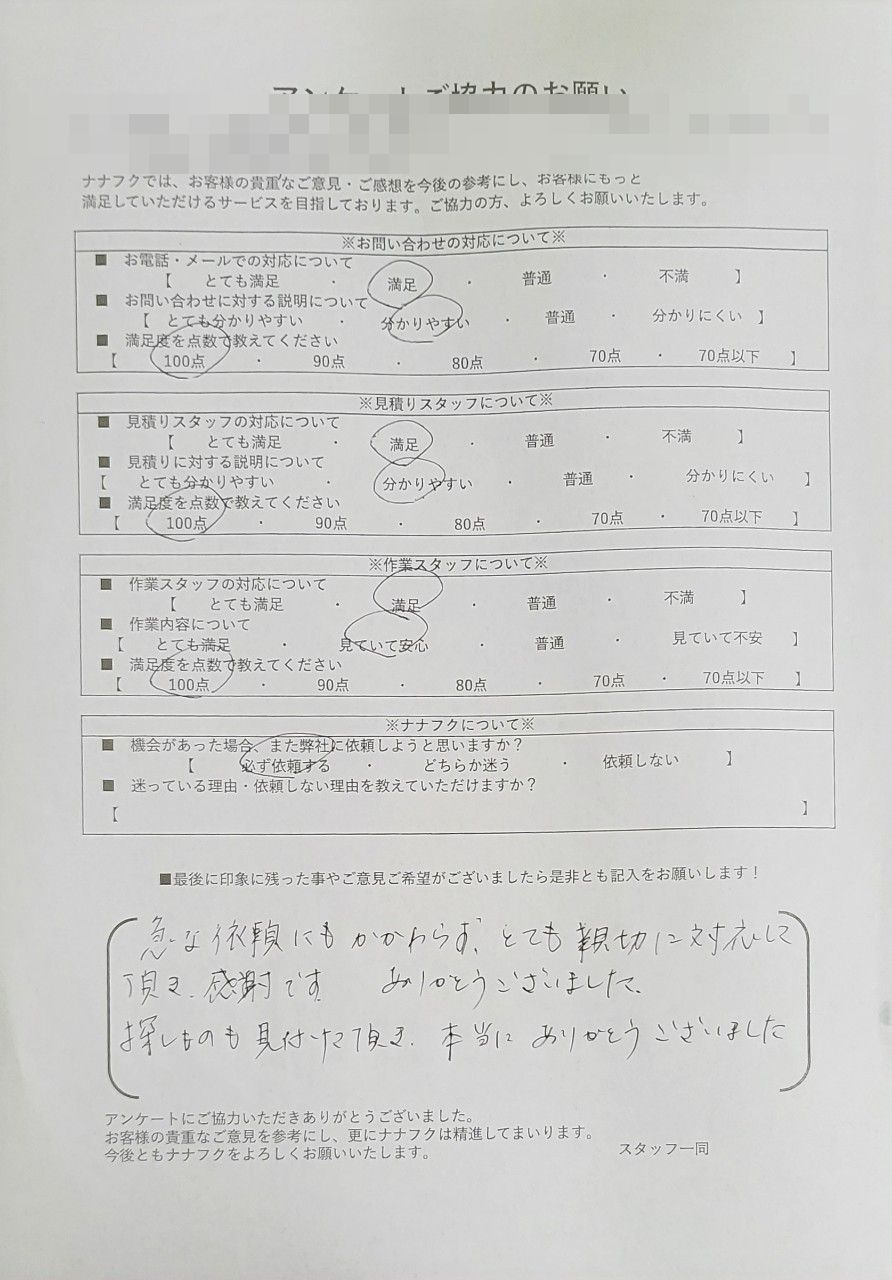 アンケートご協力のお願い
ナナフクでは、お客様の貴重なご意見・ご感想を今後の参考にし、お客様にもっと
満足していただけるサービスを目指しております。ご協力の方、よろしくお願いいたします。
※お問い合わせの対応について※
■ お電話・メールでの対応について
【 とても満足 ・ 満足 ・ 普通 ・ 不満 】
■ お問い合わせに対する説明について
【 とても分かりやすい ・ 分かりやすい ・ 普通 ・ 分かりにくい 】
■ 満足度を点数で教えてください
【 100点 ・ 90点 ・ 80点 ・ 70点 ・ 70点以下 】
※見積りスタッフについて※
■ 見積りスタッフの対応について
【 とても満足 ・ 満足 ・ 普通 ・ 不満 】
■ 見積りに対する説明について
【 とても分かりやすい ・ 分かりやすい ・ 普通 ・ 分かりにくい 】
■ 満足度を点数で教えてください
【 100点 ・ 90点 ・ 80点 ・ 70点 ・ 70点以下 】
※作業スタッフについて※
■ 作業スタッフの対応について
【 とても満足 ・ 満足 ・ 普通 ・ 不満 】
■ 作業内容について
【 とても満足 ・ 見ていて安心 ・ 普通 ・ 見ていて不安 】
■ 満足度を点数で教えてください
【 100点 ・ 90点 ・ 80点 ・ 70点 ・ 70点以下 】
※ナナフクについて※
■ 機会があった場合、また弊社に依頼しようと思いますか？
【 必ず依頼する ・ どちらか迷う ・ 依頼しない 】
■ 迷っている理由・依頼しない理由を教えていただけますか？
【 】
■最後に印象に残った事やご意見ご希望がございましたら是非とも記入をお願いします！
急な依頼にもかかわらず、とても親切に対応して
頂き、感謝です ありがとうございました。
探しものも見付けて頂き、本当にありがとうございました
アンケートにご協力いただきありがとうございました。
お客様の貴重なご意見を参考にし、更にナナフクは精進してまいります。
今後ともナナフクをよろしくお願いいたします。 スタッフ一同